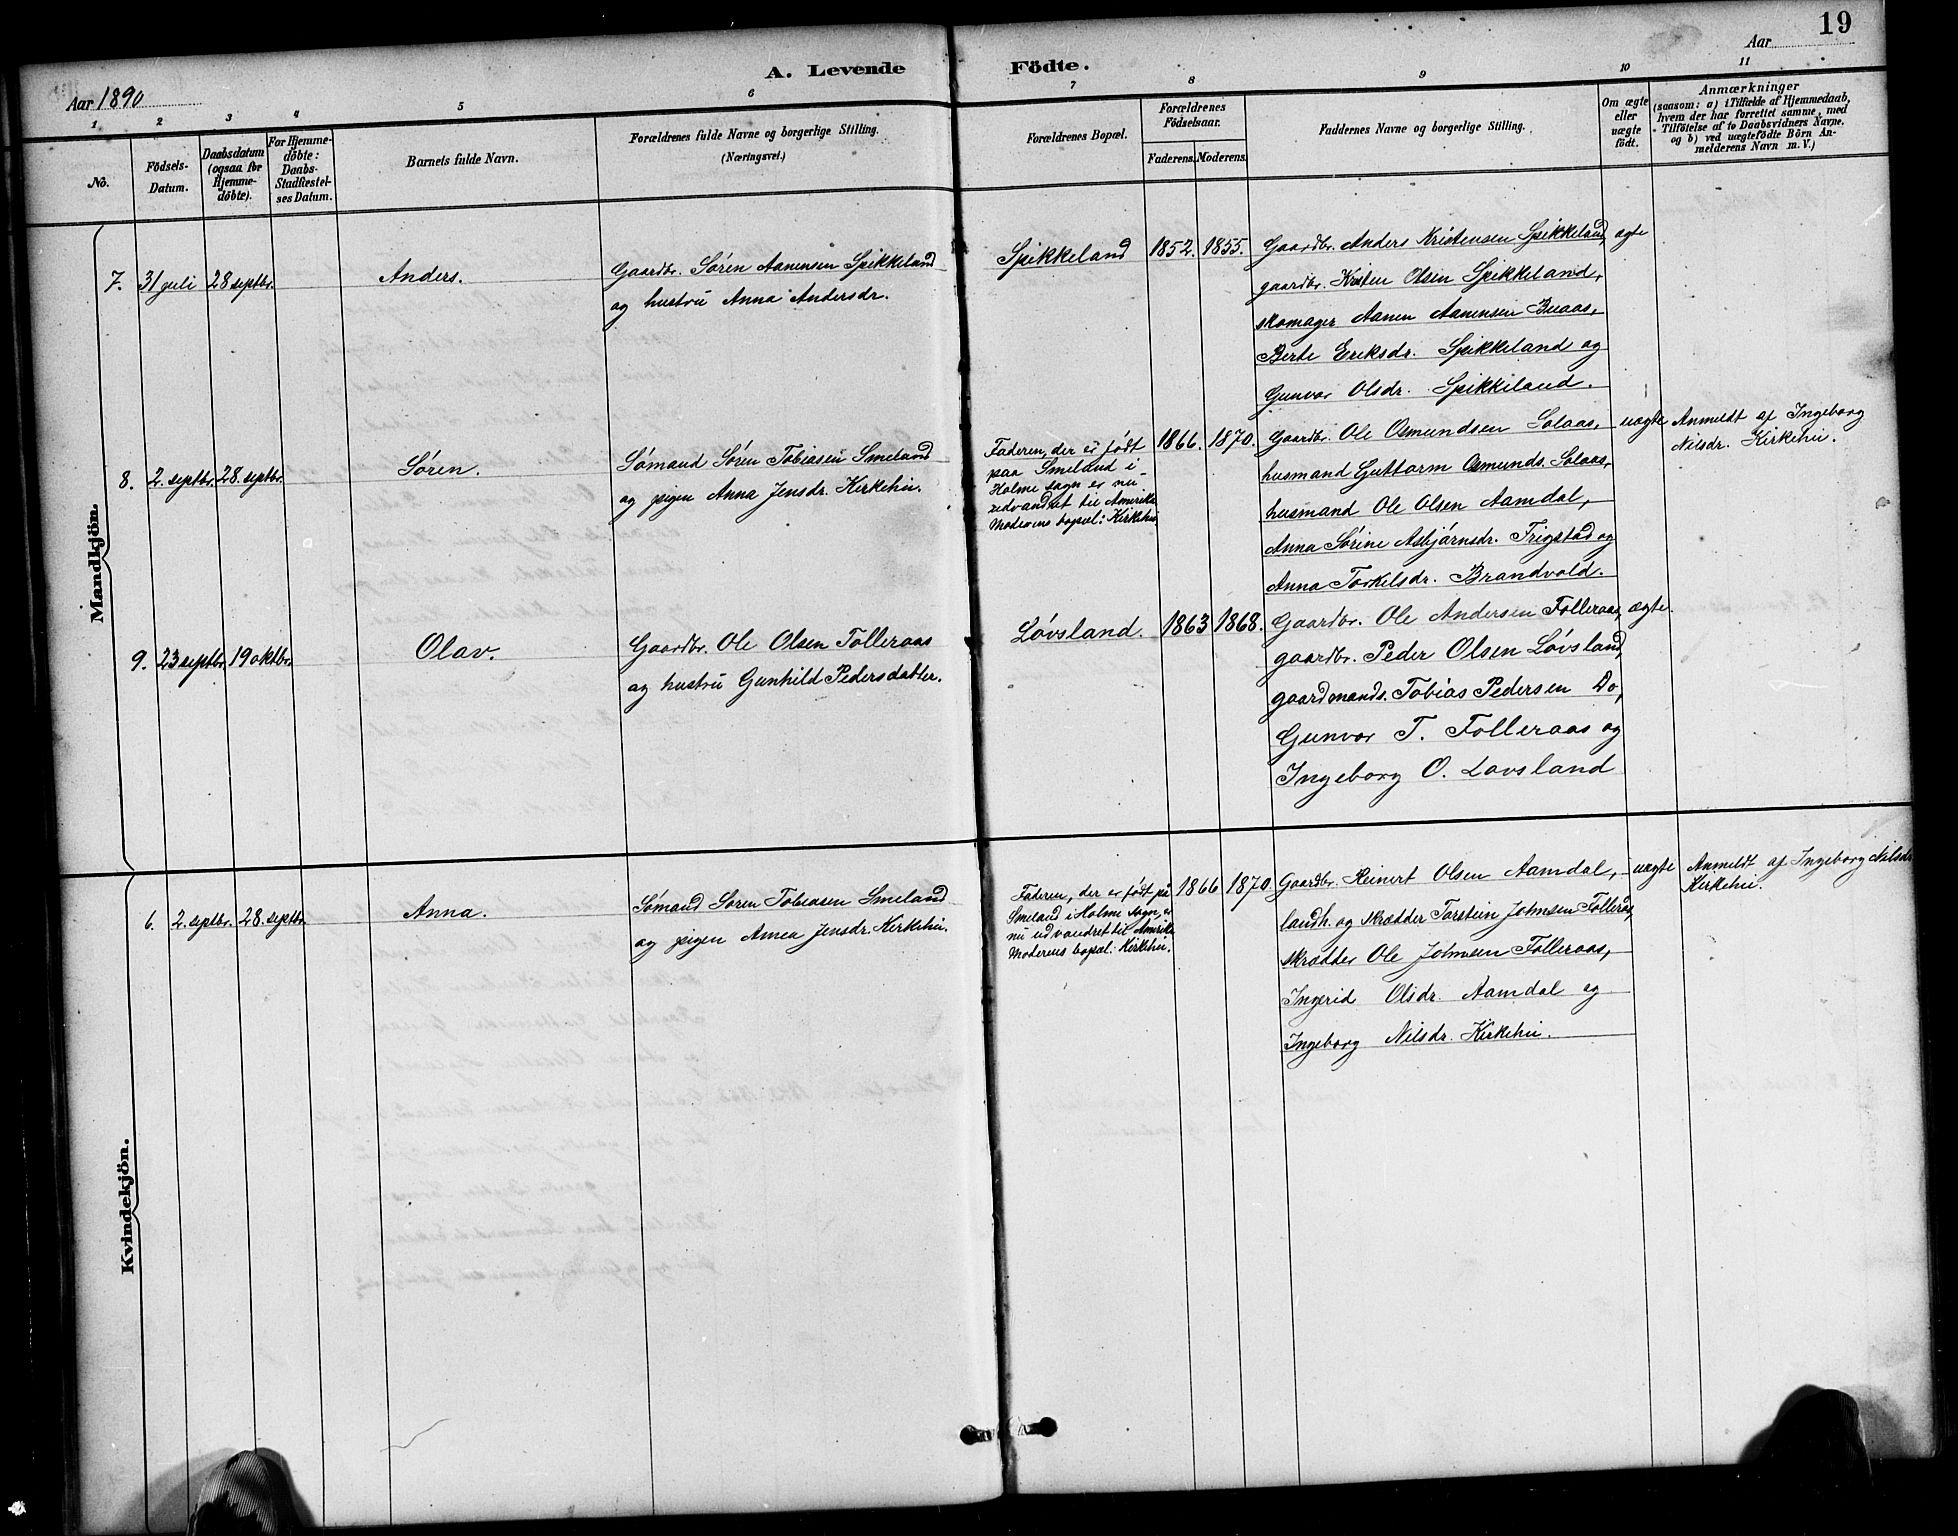 19
A. Levende Födte.
Aar 1890
Aar
1 2 3 4 5 6 7 8 9 10 11
No.
Födsels-
Datum.
Daabsdatum
(ogsaa for
Hjemme-
döbte).
For Hjemme-
döbte:
Daabs-
Stadfæstel-
ses Datum.
Barnets fulde Navn.
Forældrenes fulde Navne og borgerlige Stilling.
(Næringsvei.)
Forældrenes Bopæl.
Forældrenes
Födselsaar.
Faderens. Moderens.
Faddernes Navne og borgerlige Stilling.
Om ægte
eller
uægte
födt.
Anmærkninger
(saasom: a) i Tilfælde af Hjemmedaab,
hvem der har forrettet samme, med
Tilföielse af to Daabsvidners Navne,
og b) ved uægtefödte Börn An-
melderens Navn m. V.)
Mandkjön.
7. 31 juli 28 septbr. Anders.
Gaardbr. Søren Aanensen Spikkeland
og hustru Anna Andersdr.
Spikkeland 1852. 1855.
Gaardbr. Anders Kristensen Spikkeland, ægte
gaardbr. Kristen Olsen Spikkeland,
skomager Aanen Aanensen Buaas,
Berte Eriksdr. Spikkeland og
Gunvor Olsdr. Spikkeland.
8. 2. septbr. 28. septbr. Søren.
Sømand Søren Tobiasen Smeland
og pigen Anna Jensdr. Kirkehei.
Faderen, der er født
paa Smeland i
Holme sogn er nu
udvandret til Amerika
Moderens bopæl: Kirkehei
1866. 1870.
Gaardbr. Ole Osmundsen Solaas, uægte
husmand Guttorm Osmunds. Solaas,
husmand Ole Olsen Aamdal,
Anna Sørine Asbjørnsdr. Trigstad og
Anna Torkelsdr. Brandvold.
Anmeldt af Ingeborg
Nilsdr. Kirkehei.
9. 23 septbr. 19 oktbr. Olav.
Gaardbr. Ole Olsen Tolleraas
og hustru Gunhild Pedersdatter.
Løvsland. 1863 1868.
Gaardbr. Ole Andersen Folleraas, ægte.
gaardbr. Peder Olsen Løvsland,
gaardmands. Tobias Pedersen Do,
Gunvor T. Folleraas og
Ingeborg O. Lovsland
Kvindekjön.
6. 2. septbr. 28. septbr. Anna.
Sømand Søren Tobiasen Smeland
og pigen Anna Jensdr. Kirkehei.
Faderen, der er født på
Smeland i Holme sogn, er
nu udvandret til Amerika
Moderens bopæl: Kirkehei.
1866 1870.
Gaardbr. Reinert Olsen Aamdal, uægte
landh. og skrædder Torstein Johnsen Folleraas,
skrædder Ole Johnsen Folleraas,
Ingerid Olsdr. Aamdal og
Ingeborg Nilsdr. Kirkehei.
Anmeldt af Ingeborg Nilsdr
Kirkehei.